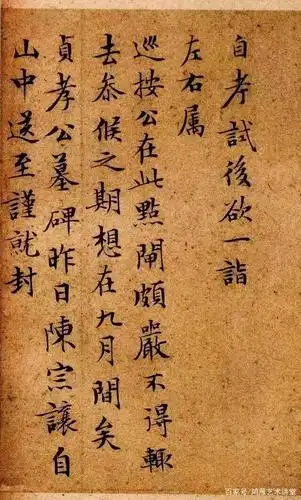 自考試後欲一詣
左右属
巡按公在此點閘頗嚴不得輙
去恭候之期想在九月間矣
貞孝公墓碑昨日陳宗讓自
山中送至謹就封
百家号/鸿雁艺术讲堂